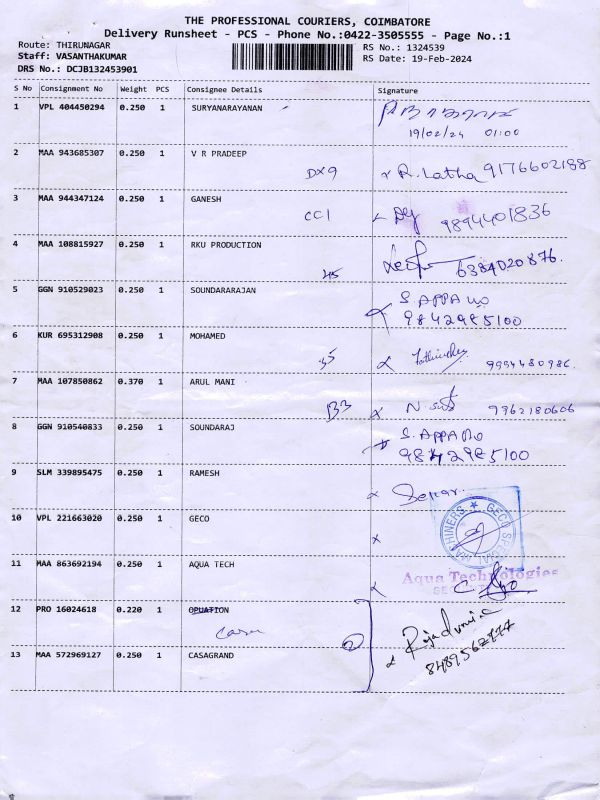 THE PROFESSIONAL COURIERS, COIMBATORE
Delivery Runsheet - PCS - Phone No.:0422-3505555 - Page No.:1
Route: THIRUNAGAR
RS No.: 1324539
Staff: VASANTHAKUMAR
RS Date: 19-Feb-2024
DRS No.: DCJB132453901
S No Consignment No Weight PCS Consignee Details Signature
1 VPL 404450294 0.250 1 SURYANARAYANAN
19/02/24 01:00
2 MAA 943685307 0.250 1 V R PRADEEP
DX9 R. Latha 9176602188
3 MAA 944347124 0.250 1 GANESH
CC1 9894401836
4 MAA 108815927 0.250 1 RKU PRODUCTION
45 6384020876.
5 GGN 910529023 0.250 1 SOUNDARARAJAN
S. APPA
9842985100
6 KUR 695312908 0.250 1 MOHAMED
35 9994480986.
7 MAA 107850862 0.370 1 ARUL MANI
B3 9962180606
8 GGN 910540833 0.250 1 SOUNDARAJ
S. APPA
9842985100
9 SLM 339895475 0.250 1 RAMESH
Sekar.
10 VPL 221663020 0.250 1 GECO
GECO SPECIAL MACHINERS
11 MAA 863692194 0.250 1 AQUA TECH
Aqua Technologies
12 PRO 16024618 0.220 1 OPUATION
Casa
2
13 MAA 572969127 0.250 1 CASAGRAND